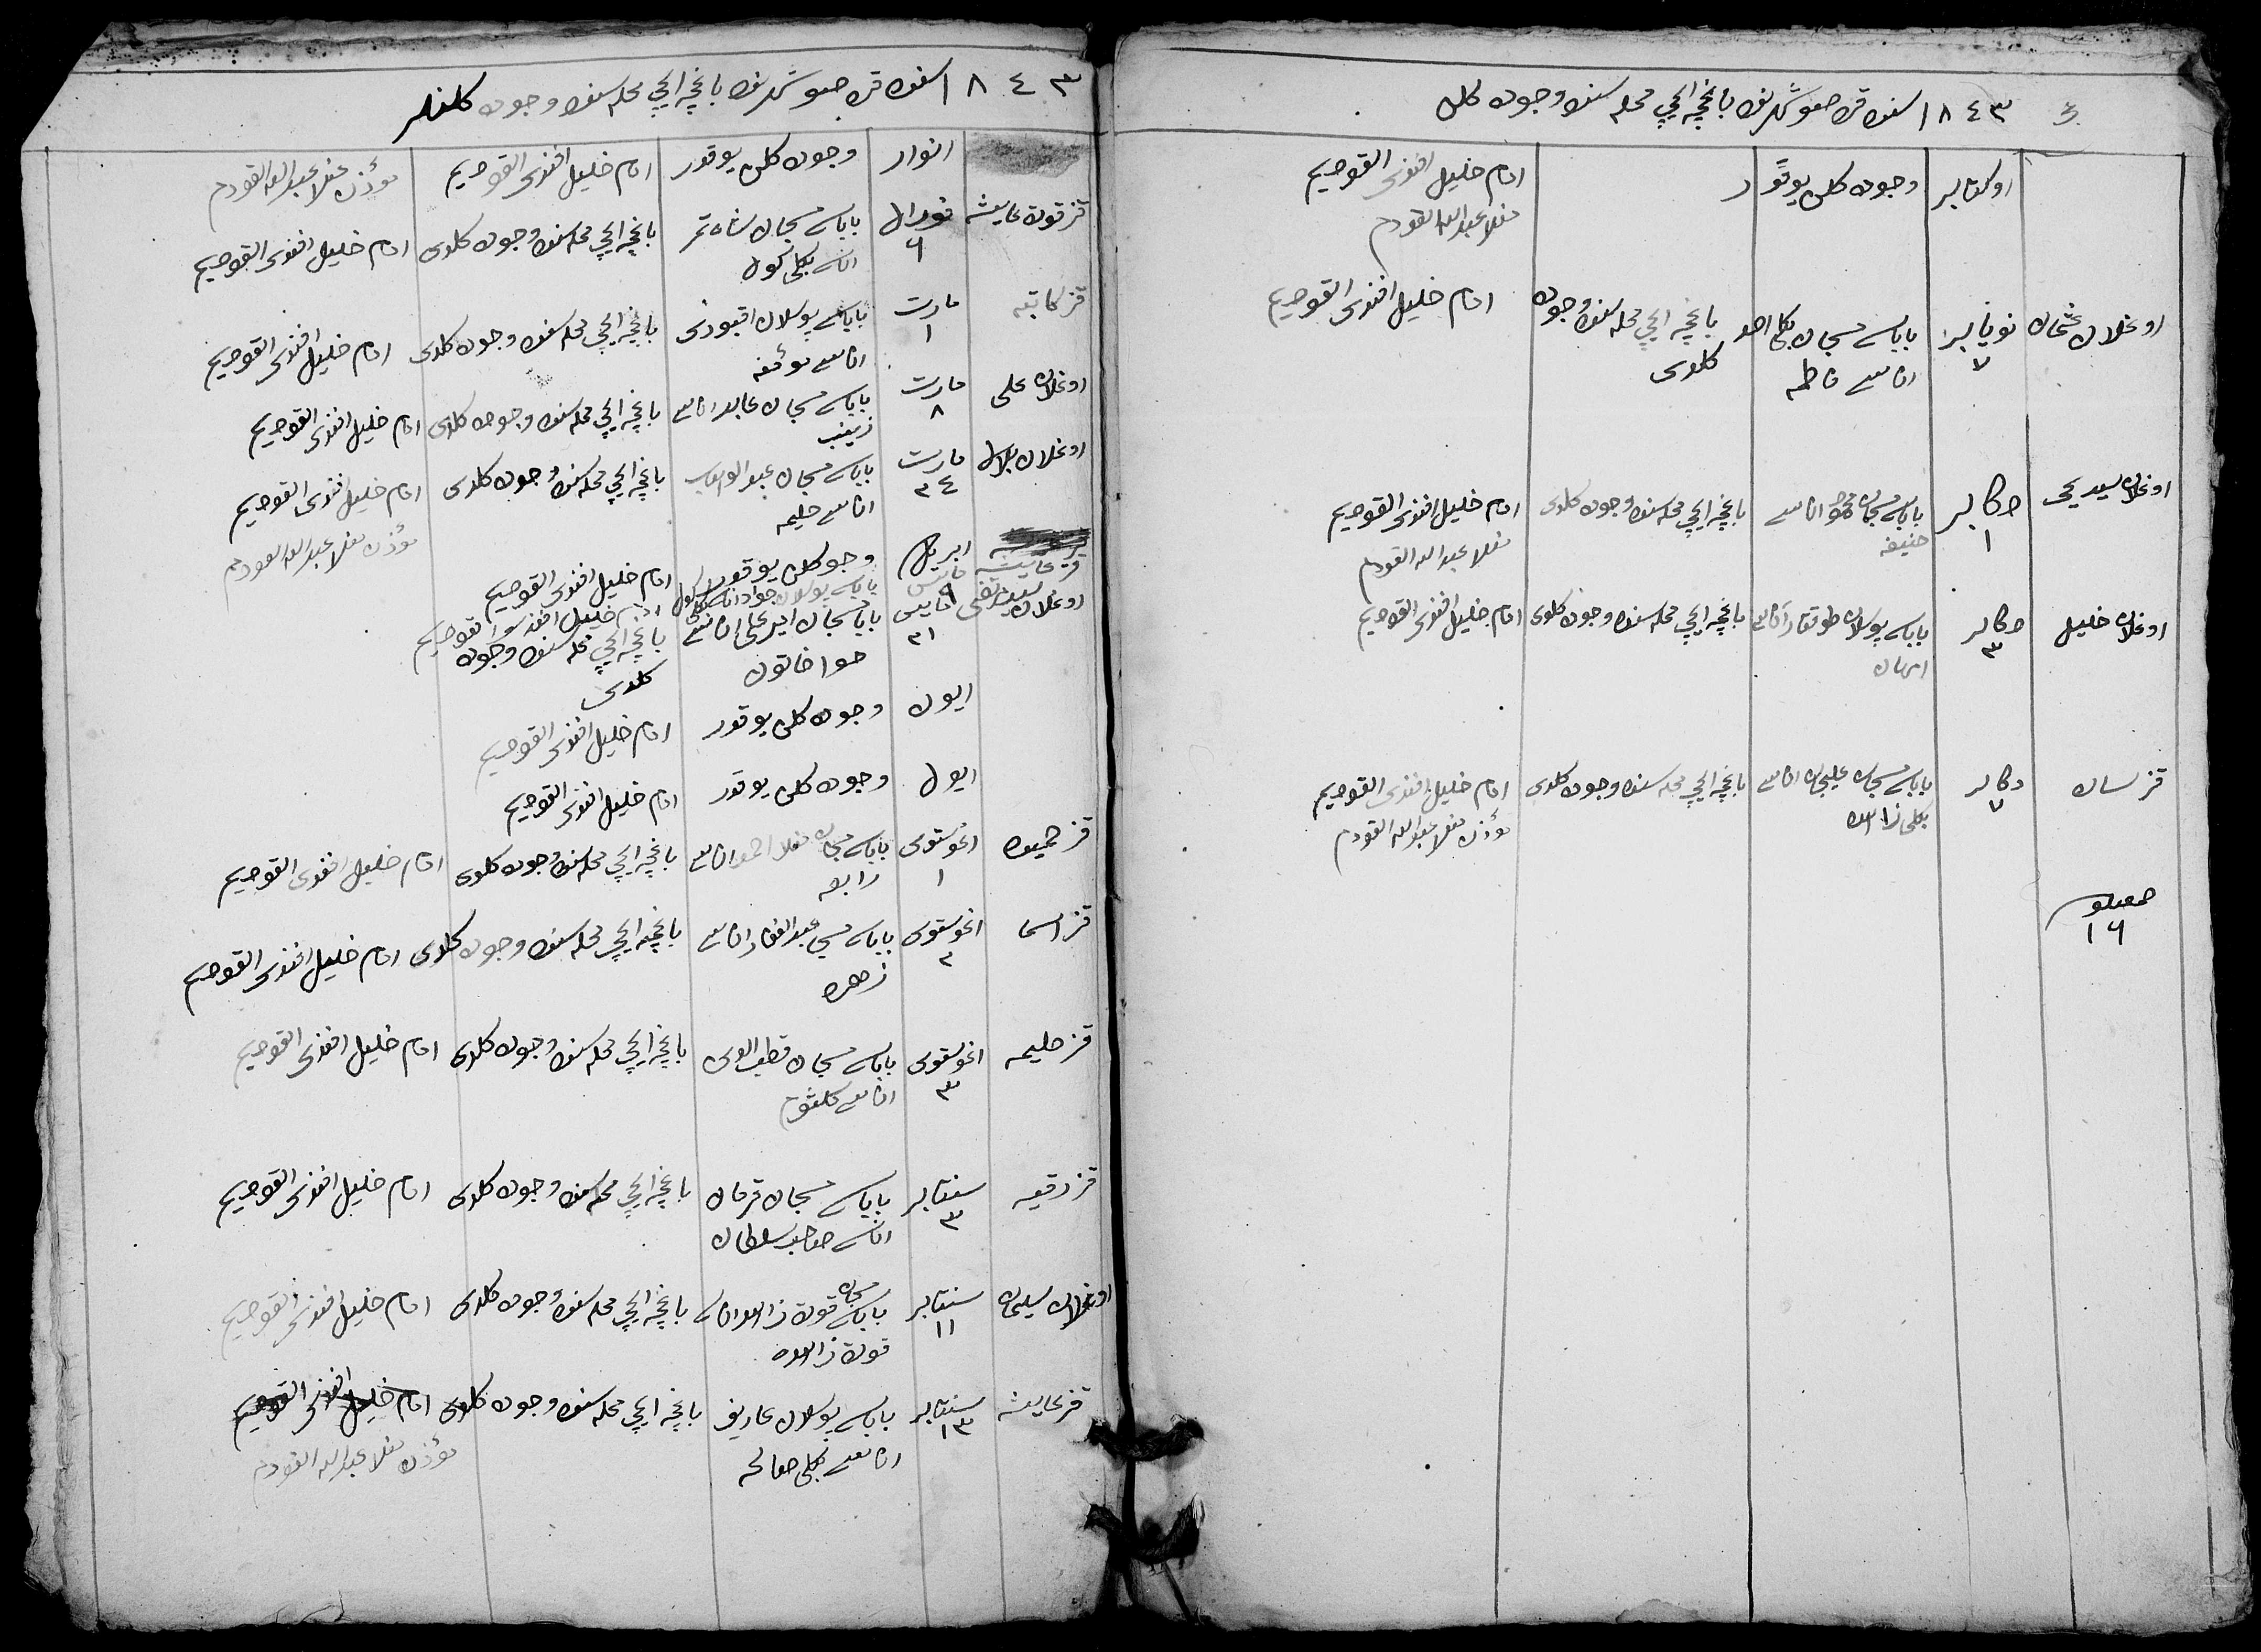 ٣ ١٨٤٣ سنه قره صو شهرینه باغچه ایچی محله سنده وجوده کلن
اوکتابر وجوده کلن یوقدر امام خلیل افندی القوصیم
منلا عبدالله القودم
اوغلان عثمان نویابر ٧ باباسی مسیحان بکلی احمد اناسی فاطمه باغچه ایچی محله سنده وجوده کلدی امام خلیل افندی القوصیم
اوغلان سید یحیی دکابر ١ باباسی اناسی حنیفه باغچه ایچی محله سنده وجوده کلدی امام خلیل افندی القوصیم
منلا عبدالله القودم
اوغلان خلیل دکابر ٣ باباسی پوسلان طوقتار اناسی باغچه ایچی محله سنده وجوده کلدی امام خلیل افندی القوصیم
قز دکابر ٧ باباسی مسیحان علیجان اناسی بکلی زاهده باغچه ایچی محله سنده وجوده کلدی امام خلیل افندی القوصیم
مؤذن منلا عبدالله القودم
جمعیسی
١٦
١٨٤٣ سنه قره صو شهرینه باغچه ایچی محله سنده وجوده کلنلر
انوار وجوده کلن یوقدر امام خلیل افندی القوصیم مؤذن منلا عبدالله القودم
قز قوت عایشه فورال ٦ باباسی مسیحان شاه تمر اناسی بکلی کول باغچه ایچی محله سنده وجوده کلدی امام خلیل افندی القوصیم
قز کاتبه مارت ١ باباسی پوسلان اقبوردی اناسی باغچه ایچی محله سنده وجوده کلدی امام خلیل افندی القوصیم
اوغلان علی مارت ٨ باباسی مسیحان عابد اناسی زینب باغچه ایچی محله سنده وجوده کلدی امام خلیل افندی القوصیم
اوغلان بلال مارت ٢٤ باباسی مسیحان عبدالوهاب اناسی حلیمه باغچه ایچی محله سنده وجوده کلدی امام خلیل افندی القوصیم
مؤذن منلا عبدالله القودم
ابریل وجوده کلن یوقدر امام خلیل افندی القوصیم
قز عایشه مایس ٩ باباسی پوسلان جواد اناسی امام خلیل افندی القوصیم
اوغلان سید مایس ٣١ باباسی مسیحان امیر علی اناسی حوا خاتون باغچه ایچی محله سنده وجوده کلدی
ایون وجوده کلن یوقدر امام خلیل افندی القوصیم
ایول وجوده کلن یوقدر امام خلیل افندی القوصیم
قز حمیده اغوستوس ١ باباسی مسیحان منلا احمد اناسی رابعه باغچه ایچی محله سنده وجوده کلدی امام خلیل افندی القوصیم
قز اسما اغوستوس ٢ باباسی مسیحان عبدالغفار اناسی زهره باغچه ایچی محله سنده وجوده کلدی امام خلیل افندی القوصیم
قز حلیمه اغوستوس ٣ باباسی مسیحان قطب الدین اناسی کلثوم باغچه ایچی محله سنده وجوده کلدی امام خلیل افندی القوصیم
قز رقیه سنتابر ٣ باباسی مسیحان قرمان اناسی صاحب سلطان باغچه ایچی محله سنده وجوده کلدی امام خلیل افندی القوصیم
اوغلان سلیمان سنتابر ١١ باباسی مسیحان قوت زاهد اناسی قوت زاهده باغچه ایچی محله سنده وجوده کلدی امام خلیل افندی القوصیم
قز عایشه سنتابر ١٣ باباسی پوسلان عارف اناسی بکلی صالحه باغچه ایچی محله سنده وجوده کلدی امام خلیل افندی القوصیم
مؤذن منلا عبدالله القودم